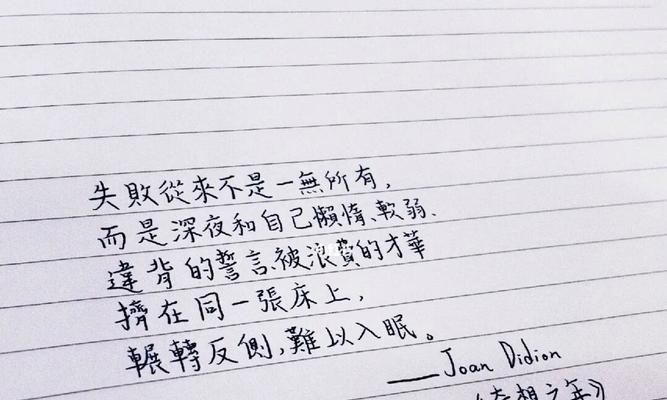 失敗從來不是一無所有，
而是深夜和自己懶惰、軟弱、
違背的誓言、被浪費的才華
擠在同一張床上，
輾轉反側，難以入眠。
——Joan Didion